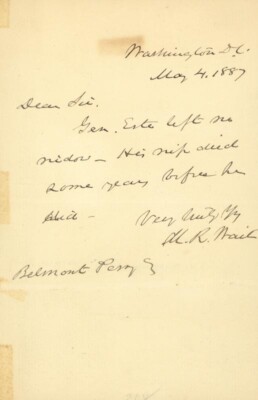 Washington D.C.
May 4. 1887
Dear Sir.
Gen. Este left no
widow – His wife died
some years before he
did –
Very truly Yrs
M. R. Wait
Belmont Perry Esq